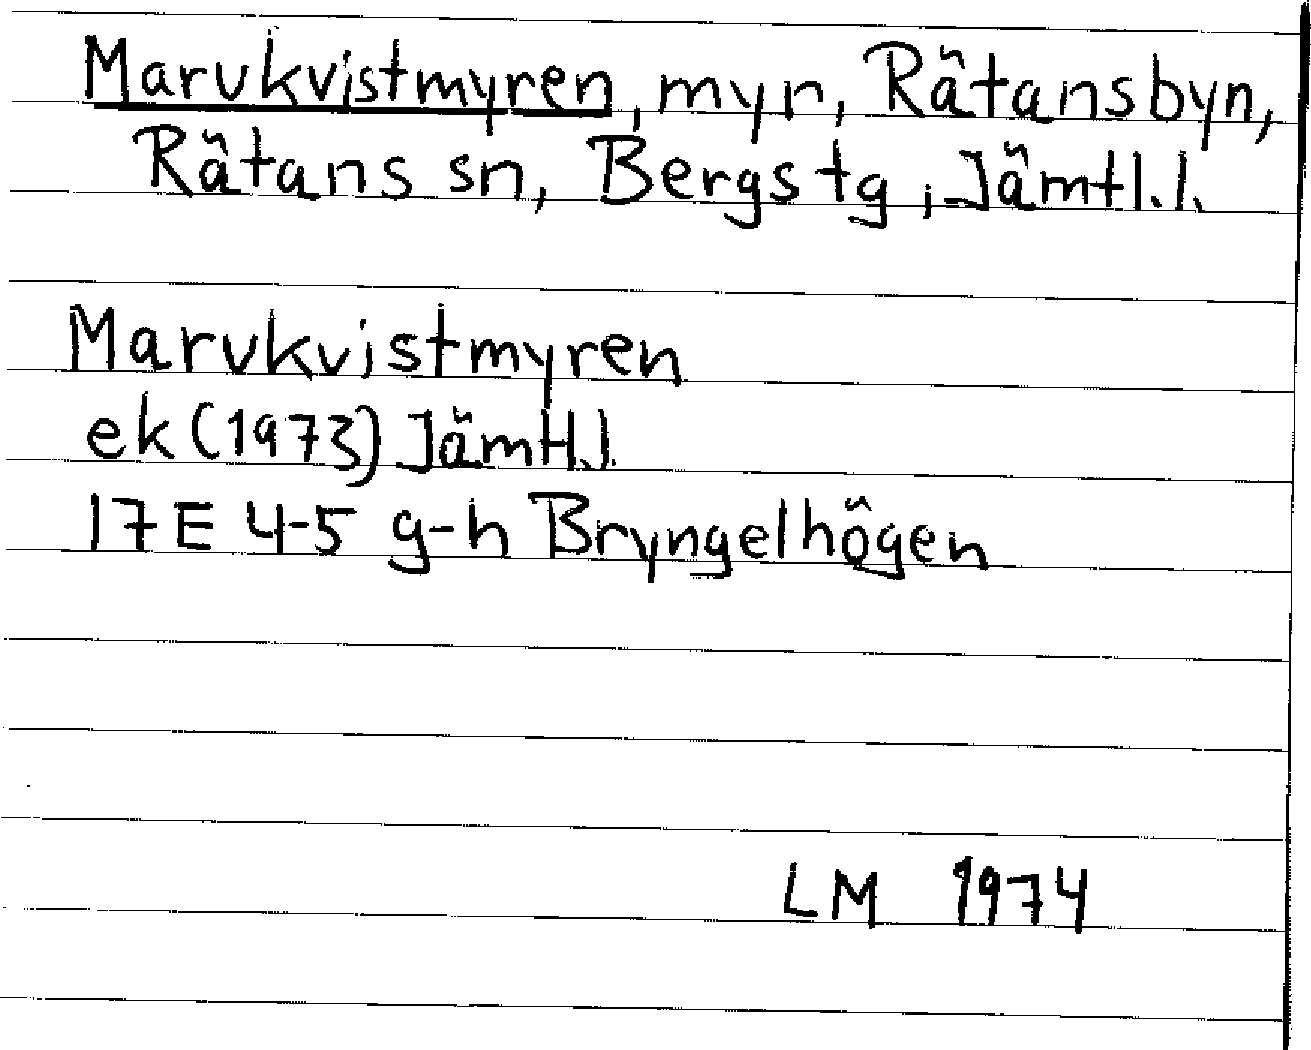 Marukvistmyren, myr, Rätansbyn,
Rätans sn, Bergs tg, Jämtl.l.
Marukvistmyren
ek (1973) Jämtl.l.
17E 4-5 g-h Bryngelhögen
LM 1974